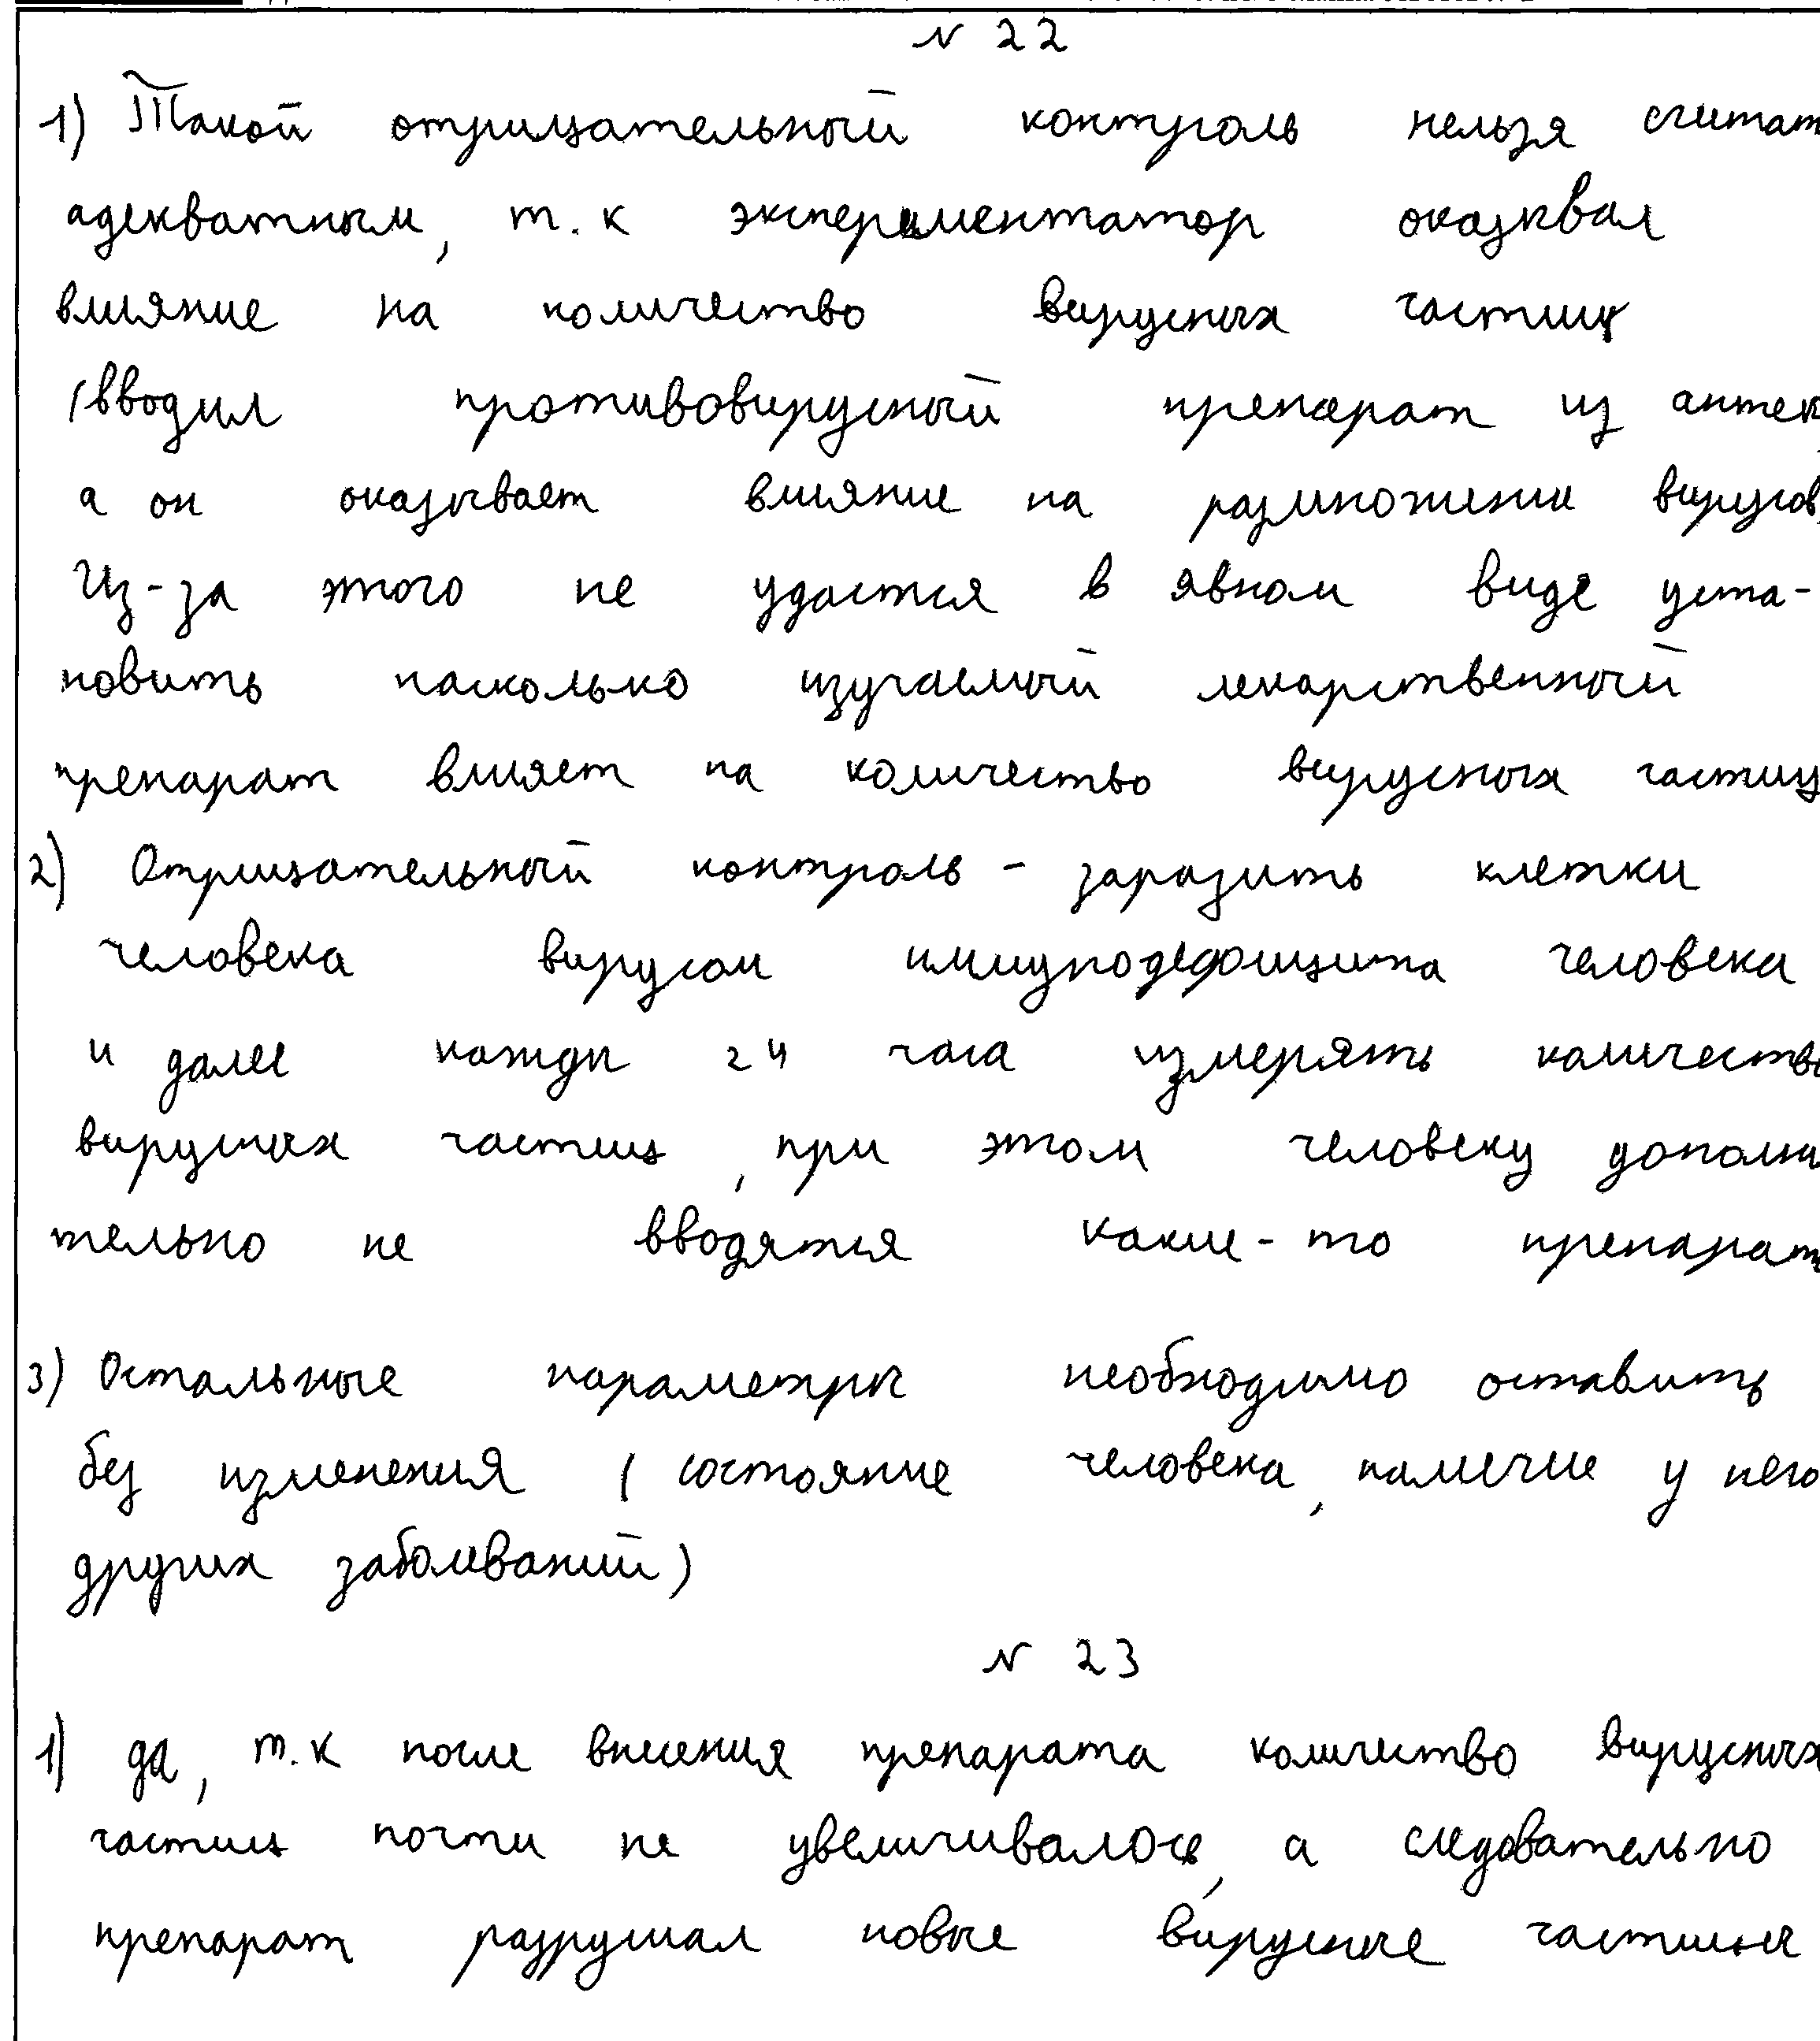 № 22
1) Такой отрицательный контроль нельзя считат
адекватным, т.к экспериментатор оказывал
влияние на количество вирусных частиц
(вводил противовирусный препарат из аптек
а он оказывает влияние на размножение вирусов)
Из-за этого не удастся в явном виде уста-
новить насколько изучаемый лекарственный
препарат влияет на количество вирусных частиц
2) Отрицательный контроль - заразить клетки
человека вирусом иммунодефицита человека
и далее кажды 24 часа измерять количество
вирусных частиц, при этом человеку дополни
тельно не вводятся какие-то препарат
3) Остальные параметры необходимо оставить
без изменения (состояние человека, наличие у него
других заболеваний)
№ 23
1) да, т.к после внесения препарата количество вирусных
частиц почти не увеличивалось, а следовательно
препарат разрушал новые вирусные частицы